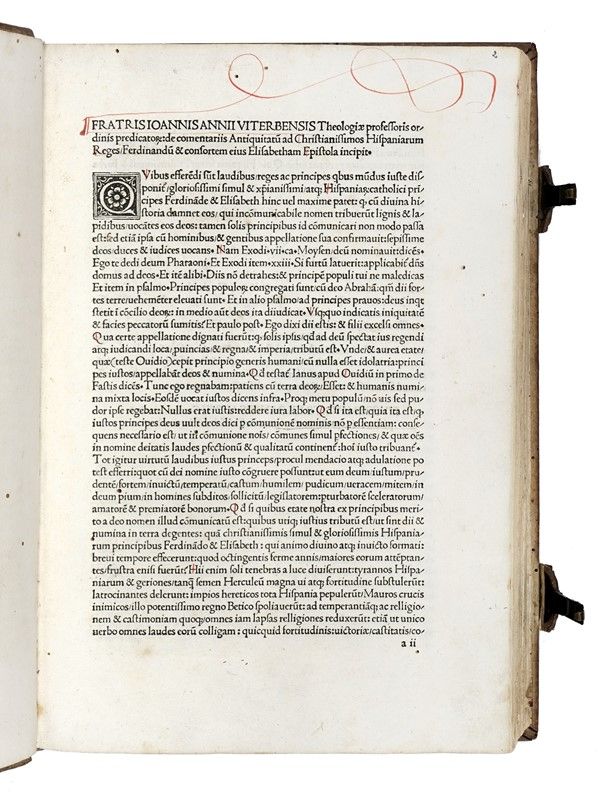 2
FRATRIS IOANNIS ANNII VITERBENSIS Theologiæ professoris or-
dinis predicatoꝝ: de comentariis Antiquitatū ad Christianissimos Hispaniarum
Reges/Ferdinandū & consortem eius Elisabetham Epistola incipit•
Quibus efferēdi sūt laudibus/reges ac principes qbus mūdus iuste dis-
ponit̃/gloriosissimi simul & xp̄ianissimi/atq; Hispaniaꝝ catholici pri-
cipes Ferdināde & Elisabeth hinc uel maxime patet: q. cū diuina hi-
storia damnet eos/qui incōmunicabile nomen tribuerūt lignis & la-
pidibus/uocātes eos deos: tamen solis principibus id cōmunicari non modo passa
est: sed etiā ipsa cū hominibus/& gentibus appellatione sua confirmauit: sepissime
deos/duces & iudices uocans• Nam Exodi•vii•ca• Moysen/deū nominauit: dicēs•
Ego te dedi deum Pharaoni•Et Exodi item•xxiii•Si furtū latuerit: applicabit̃ dn̄s
domus ad deos•Et itē alibi•Diis nō detrahes: & principē populi tui ne maledicas
Et item in psalmo•Principes populoꝝ congregati sunt: cū deo Abrahā: qm̄ dii for-
tes terre/uehemēter eleuati sunt•Et in alio psalmo/ad principes prauos: deus inqt
stetit ī cōcilio deoꝝ: in medio aūt deos ita diiudicat•Vsquo iudicatis iniquitatē
& facies peccatorū sumitis?Et paulo post•Ego dixi dii estis: & filii excelsi omnes•
Qua certe appellatione dignati fuerūt: q. solis ipsis/qd ad deū spectat ius regendi
atq; iudicandi loca/puincias/& regna/& imperia/tributū est•Vnde/& aurea etate/
quæ(teste Ouidio)cepit principio generis humani/cū nulla esset idolatria: princi-
pes iustos/appellabāt deos & numina•Qd testat̃ Ianus apud Ouidiū in primo de
Fastis dicēs•Tunc ego regnabam: patiens cū terra deoꝝ/Esset: & humanis numi-
na mixta locis•Eosdē uocat iustos dicens infra•Proq; metu populū/nō uis sed pu-
dor ipse regebat: Nullus erat iustis: reddere iura labor•Qd si ita est/quia ita est/q.
iustos principes deus uult deos dici p cōmunionē nominis/nō p essentiam: conse-
quens necessario est/ut iti cōmunione nois/cōmunes simul pfectiones/& quæ oēs
in nomine deitatis laudes pfectionū & qualitatū continent̃: hoi iusto tribuant̃•
Tot igitur uirtutū laudibus iustus princeps/procul mendacio atq; adulatione po
test efferri: quot cū dei nomine iusto cōgruere possunt: ut eum deum/iustum/pru-
dentē/fortem/inuictū/temperatū/castum/humilem/pudicum/ueracem/mitem/in
deum pium/in homines subditos/sollicitū/legislatorem: pturbatorē sceleratorum/
amatorē & premiatorē bonorum•Qd si quibus etate nostra ex principibus meri-
to a deo nomen illud cōmunicatū est: quibus utiq; iustius tributū est/ut sint dii &
numina in terra degentes: quā christianissimis simul & gloriosissimis Hispania-
rum principibus Ferdinādo & Elisabeth: qui animo diuino atq; inuicto formati:
breui tempore effecerunt: quod octingentis ferme annis/maiores eorum attēptan-
tes/frustra enisi fuerūt?Hii enim soli tenebras a luce diuiserunt: tyrannos Hispa-
niarum & geriones/tanq̄ semen Herculeū magna ui atq; fortitudine substulerūt:
latrocinantes delerunt: impios hereticos tota Hispania pepulerūt/Mauros crucis
inimicos/illo potentissimo regno Betico spoliauerūt: ad temperantiāq; ac relligio-
nem & castimoniam quoq;/omnes iam lapsas relligiones reduxerūt: etiā ut unico
uerbo omnes laudes eorū colligam: quicquid fortitudinis: uictoriæ/castitatis/co-
a ii